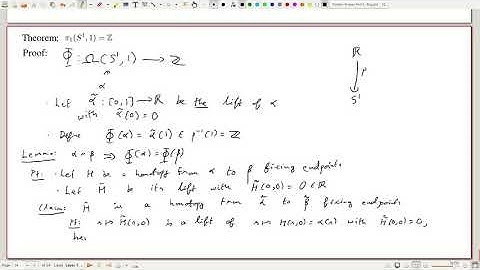 Theorem: π₁(S¹, 1) = ℤ
Proof: Φ : Ω(S¹, 1) → ℤ
ℝ
∋
α
↓ p
S¹
· Let α̃ : [0,1] → ℝ be the lift of α
with α̃(0) = 0
· Define Φ(α) = α̃(1) ∈ p⁻¹(1) = ℤ
Lemma: α ∼ β ⇒ Φ(α) = Φ(β)
Pf: · Let H be a homotopy from α to β fixing endpoints
· Let H̃ be its lift with H̃(0,0) = 0 ∈ ℝ
Claim: H̃ is a homotopy from α̃ to β̃ fixing endpoints
Pf: s ↦ H̃(s,0) is a lift of s ↦ H(s,0) = α(s) with H̃(0,0) = 0,